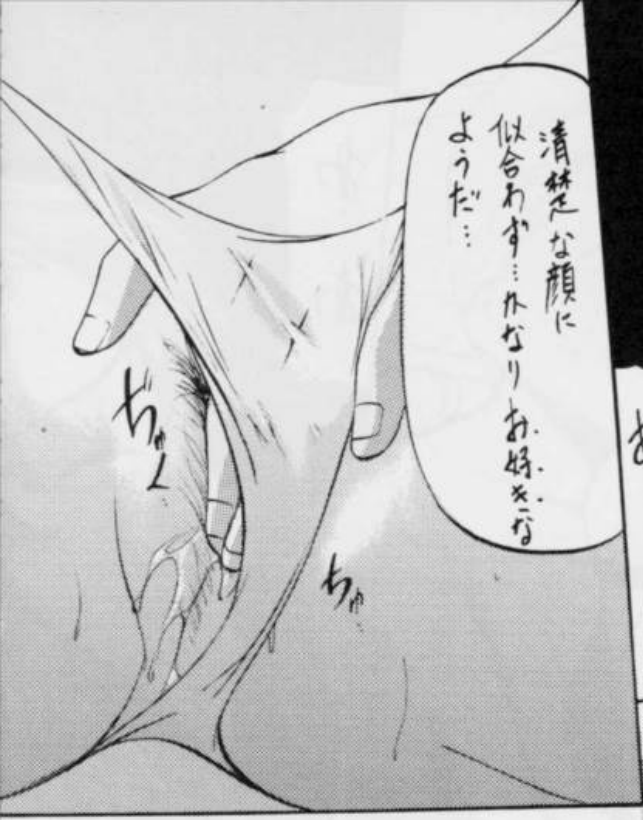 清楚な顔に
似合わず…かなりお好きな
ようだ…
ぢゅく
ちゅ